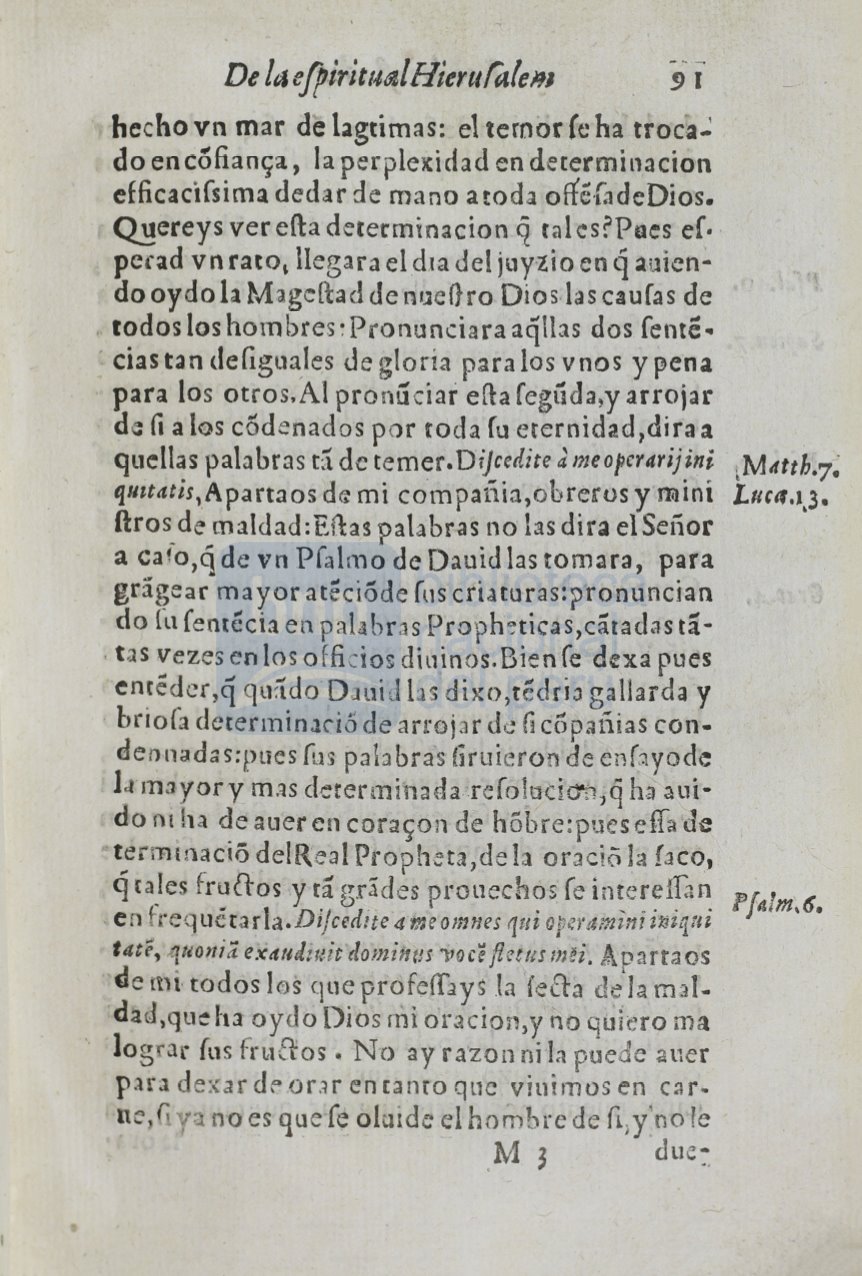 De la eſpiritual Hieruſalem 91
hecho vn mar de lagrimas: el temor ſe ha troca-
do en cõfiança, la perplexidad en determinacion
efficaciſsima de dar de mano a toda offẽſa de Dios.
Quereys ver eſta determinacion q̃ tal es? Pues eſ-
perad vn rato, llegara el dia del juyzio en q̃ auien-
do oydo la Mageſtad de nueſtro Dios las cauſas de
todos los hombres: Pronunciara aq̃llas dos ſentẽ-
cias tan deſiguales de gloria para los vnos y pena
para los otros. Al pronũciar eſta ſegũda, y arrojar
de ſi a los cõdenados por toda ſu eternidad, dira a
quellas palabras tã de temer. Diſcedite à me operarij ini
quitatis, Apartaos de mi compañia, obreros y mini
ſtros de maldad: Eſtas palabras no las dira el Señor
a caſo, q̃ de vn Pſalmo de Dauid las tomara, para
grãgear mayor atẽciõ de ſus criaturas: pronuncian
do ſu ſentẽcia en palabras Propheticas, cãtadas tã-
tas vezes en los officios diuinos. Bien ſe dexa pues
entẽder, q̃ quãdo Dauid las dixo, tẽdria gallarda y
brioſa determinaciõ de arrojar de ſi cõpañias con-
dennadas: pues ſus palabras ſiruieron de enſayo de
la mayor y mas determinada reſolucion, q̃ ha aui-
do ni ha de auer en coraçon de hõbre: pues eſſa de
terminaciõ del Real Propheta, de la oraciõ la ſaco,
q̃ tales fructos y tã grãdes prouechos ſe intereſſan
en frequẽtarla. Diſcedite a me omnes qui operamini iniqui
tatẽ, quoniã exaudiuit dominus vocẽ fletus mei. Apartaos
de mi todos los que profeſſays la ſecta de la mal-
dad, que ha oydo Dios mi oracion, y no quiero ma
lograr ſus fructos. No ay razon ni la puede auer
para dexar de orar en tanto que viuimos en car-
ne, ſi ya no es que ſe oluide el hombre de ſi, y no ſe
M 3 due-
Matth. 7.
Luca. 13.
Pſalm. 6.